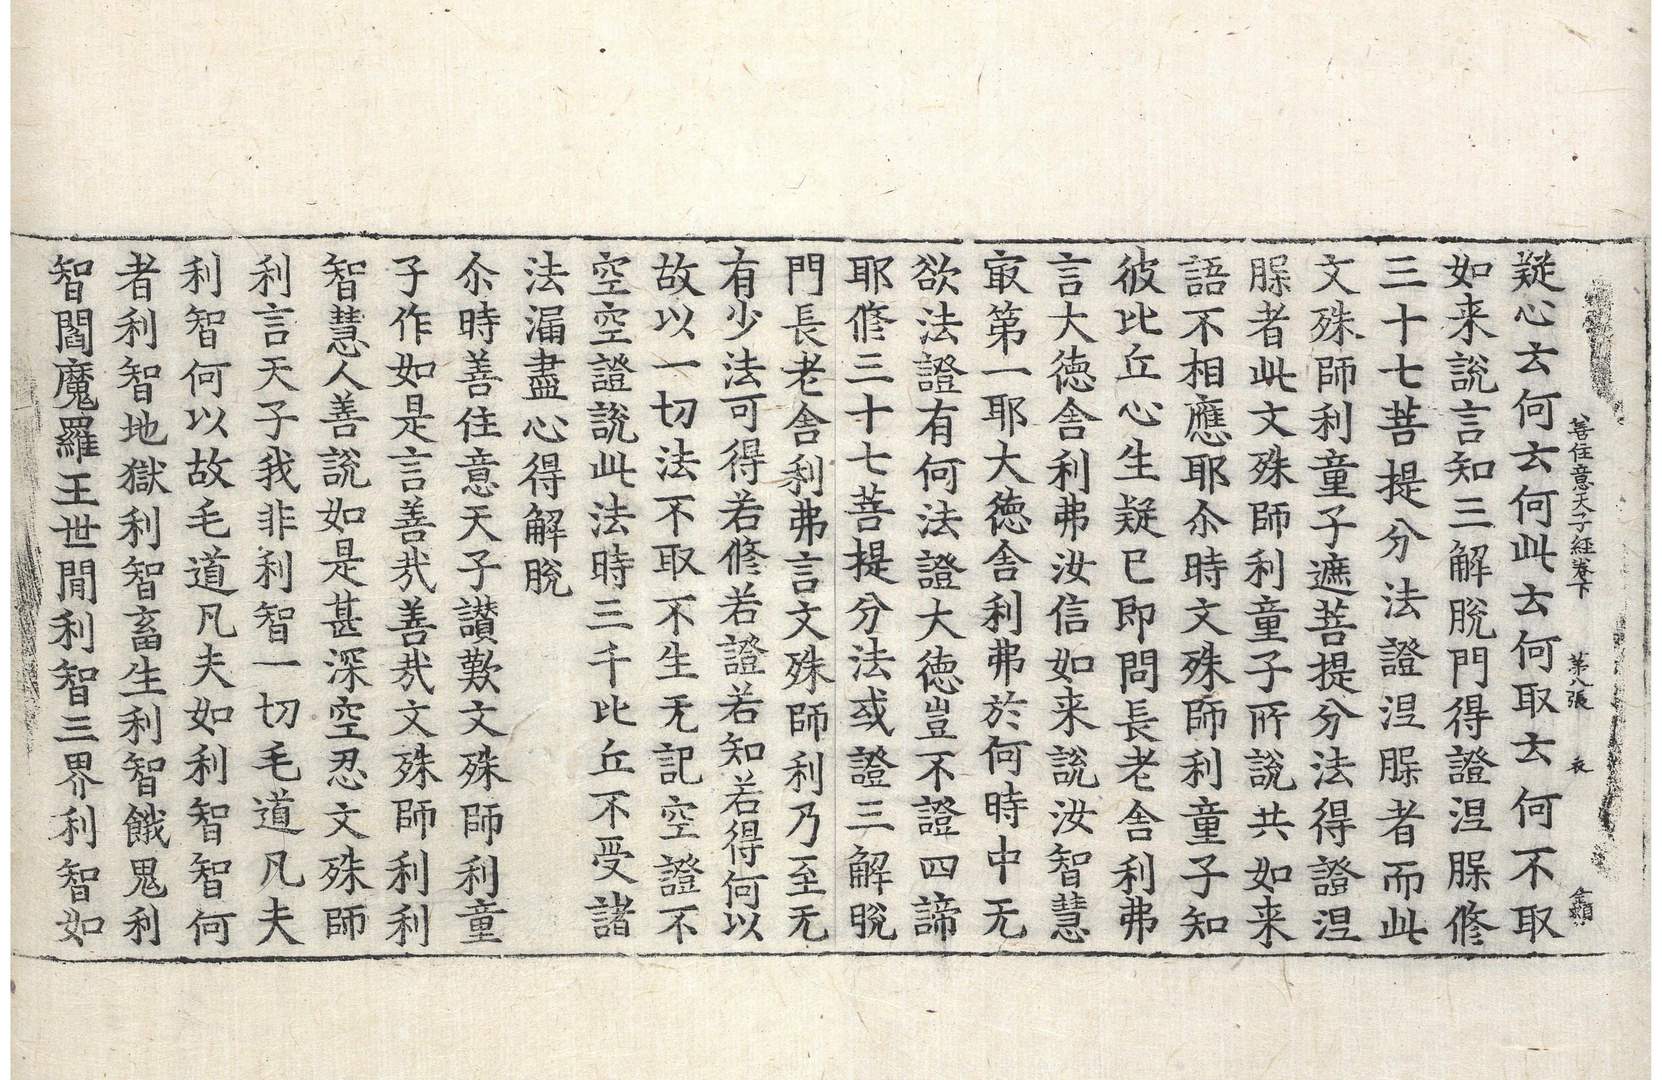 善住意天子經卷下　第八張　衣
疑心去何去何此去何取去何不取
如来說言知三解脫門得證涅𦘺修
三十七菩提分法證涅𦘺者而此
文殊師利童子遮菩提分法得證涅
𦘺者此文殊師利童子所說共如来
語不相應耶尒時文殊師利童子知
彼比丘心生疑已即問長老舍利弗
言大徳舍利弗汝信如来說汝智慧
㝡第一耶大徳舍利弗於何時中无
欲法證有何法證大徳豈不證四諦
耶修三十七菩提分法或證三解脫
門長老舍利弗言文殊師利乃至无
有少法可得若修若證若知若得何以
故以一切法不取不生无記空證不
空空證說此法時三千比丘不受諸
法漏盡心得解脫
尒時善住意天子讃歎文殊師利童
子作如是言善㢤善㢤文殊師利利
智慧人善說如是甚深空忍文殊師
利言天子我非利智一切毛道凡夫
利智何以故毛道凡夫如利智智何
者利智地獄利智畜生利智餓鬼利
智閻魔羅王世間利智三界利智如